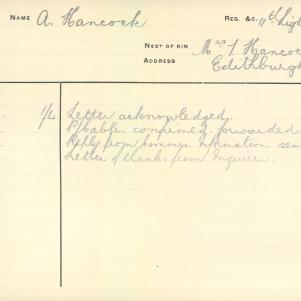 NAME A. Hancock REG. &C. 11th Light
NEXT OF KIN Mrs I Hancoc
ADDRESS Edithburgh
1/4 Letter acknowledged.
P/Cable. confirmed, forwarded
Reply from Commrs. information sen
Letter of thanks from Enquirer.